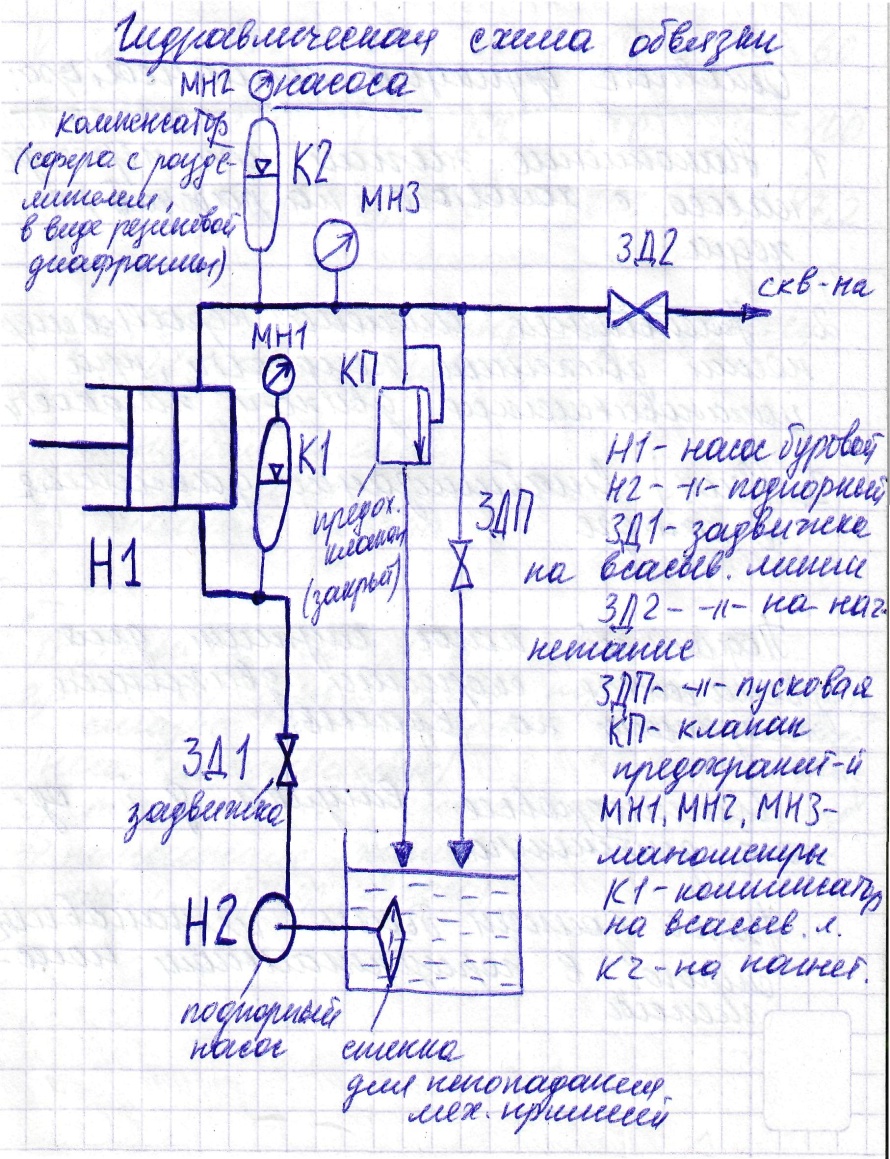 Гидравлическая схема обвязки
насоса
МН2
компенсатор
(сфера с разде-
лителем,
в виде резиновой
диафрагмы)
К2
МН3
ЗД2
скв-на
МН1
КП
К1
предох.
клапан
(закрыт)
ЗДП
Н1
Н1- насос буровой
Н2- -||- подпорный
ЗД1- задвижка
на всасыв. линии
ЗД2- -||- на наг-
нетание
ЗДП- -||- пусковая
КП- клапан
предохранит-й
МН1, МН2, МН3-
манометры
К1-компенсатор
на всасыв. л.
К2-на нагнет.
ЗД1
задвижка
Н2
подпорный
насос
сетка
для непопадания
мех. примесей